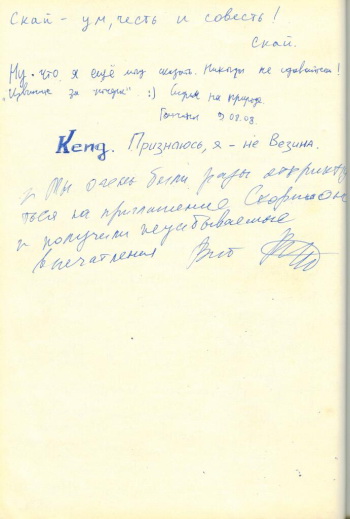 Скай - ум, честь и совесть!
Скай.
Ну что я ещё могу сказать. Никогда не сдавайтесь!
"Извините за почерк" :) на природе.
9.08.08.
Кенд. Признаюсь, я - не Везина.
Мы очень были рады откликну
ться на приглашение
и получили незабываемые
впечатления